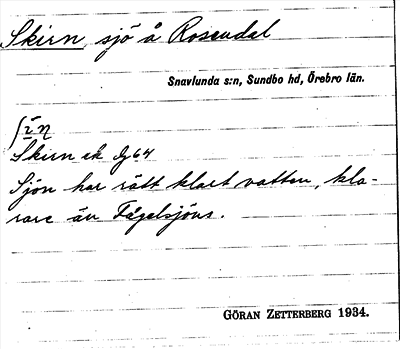 Skirn sjö å Rosendal
Snavlunda s:n, Sundbo hd, Örebro län.
Skirn ek Jg 64
Sjön har rätt klart vatten, kla-
rare än Fågelsjöns.
GÖRAN ZETTERBERG 1934.